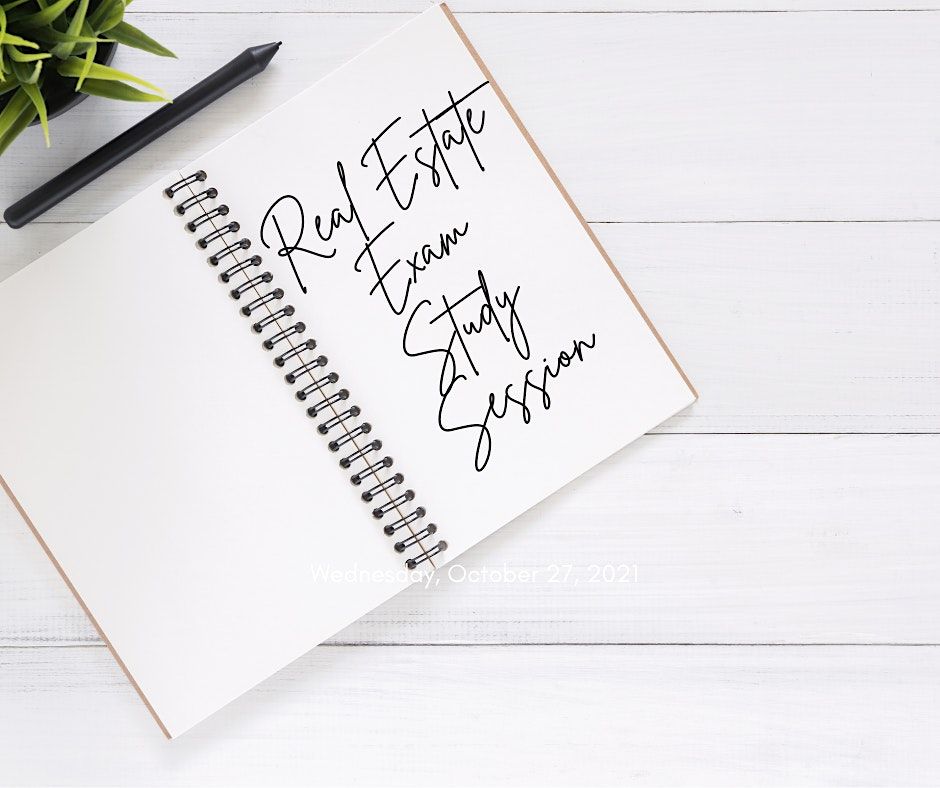 Real Estate
Exam
Study
Session
Wednesday, October 27, 2021